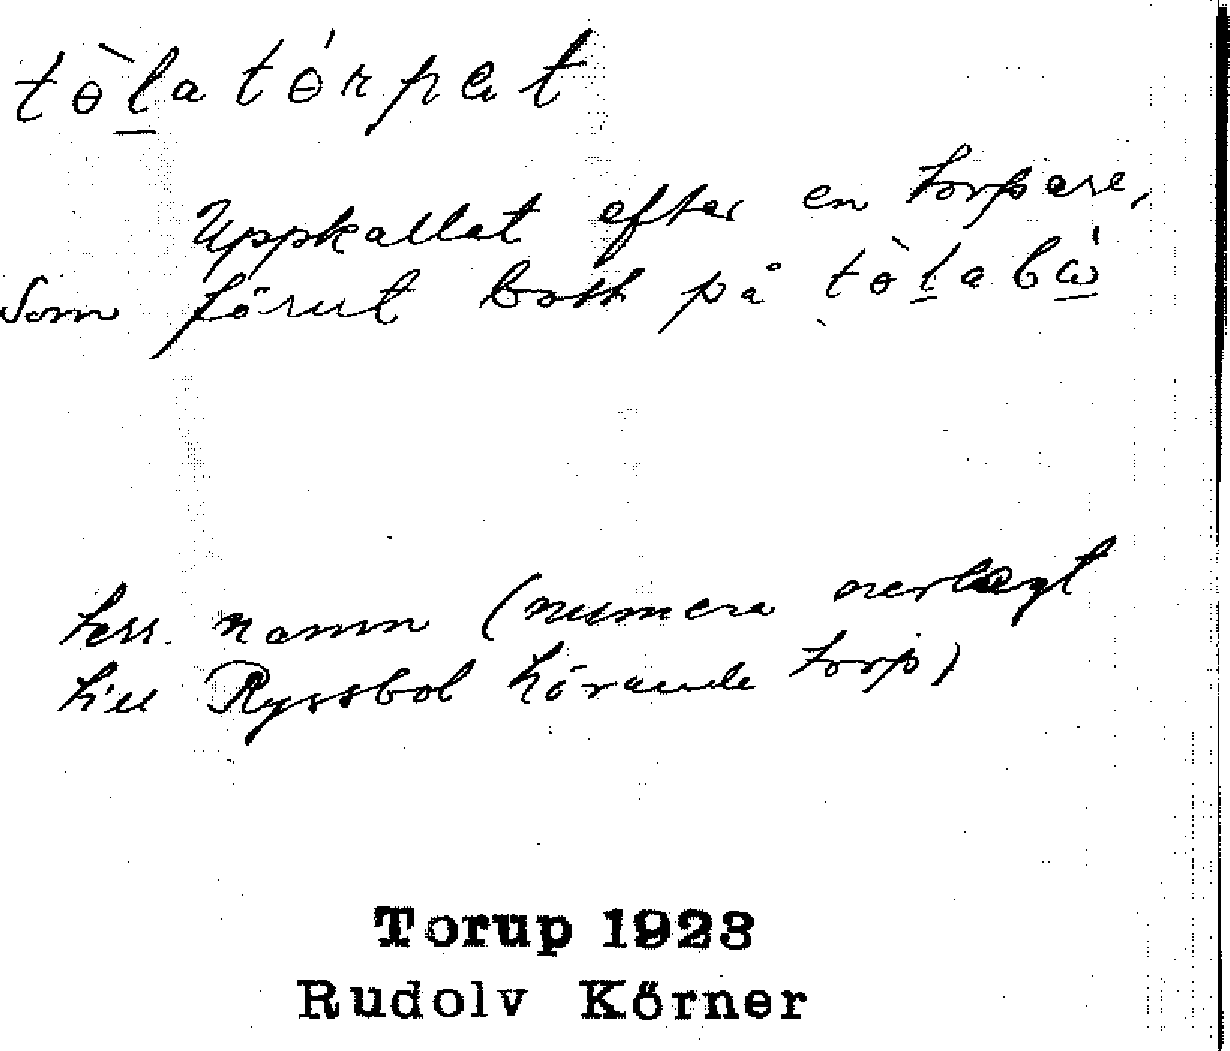 tɵ̀l̲atɵ́rpət
Uppkallat efter en torpare,
som förut bott på tɵ̀l̲abὼ̲
terr. namn (numera nerlagt
till Ryssbol hörande torp)
Torup 1923
Rudolv Körner